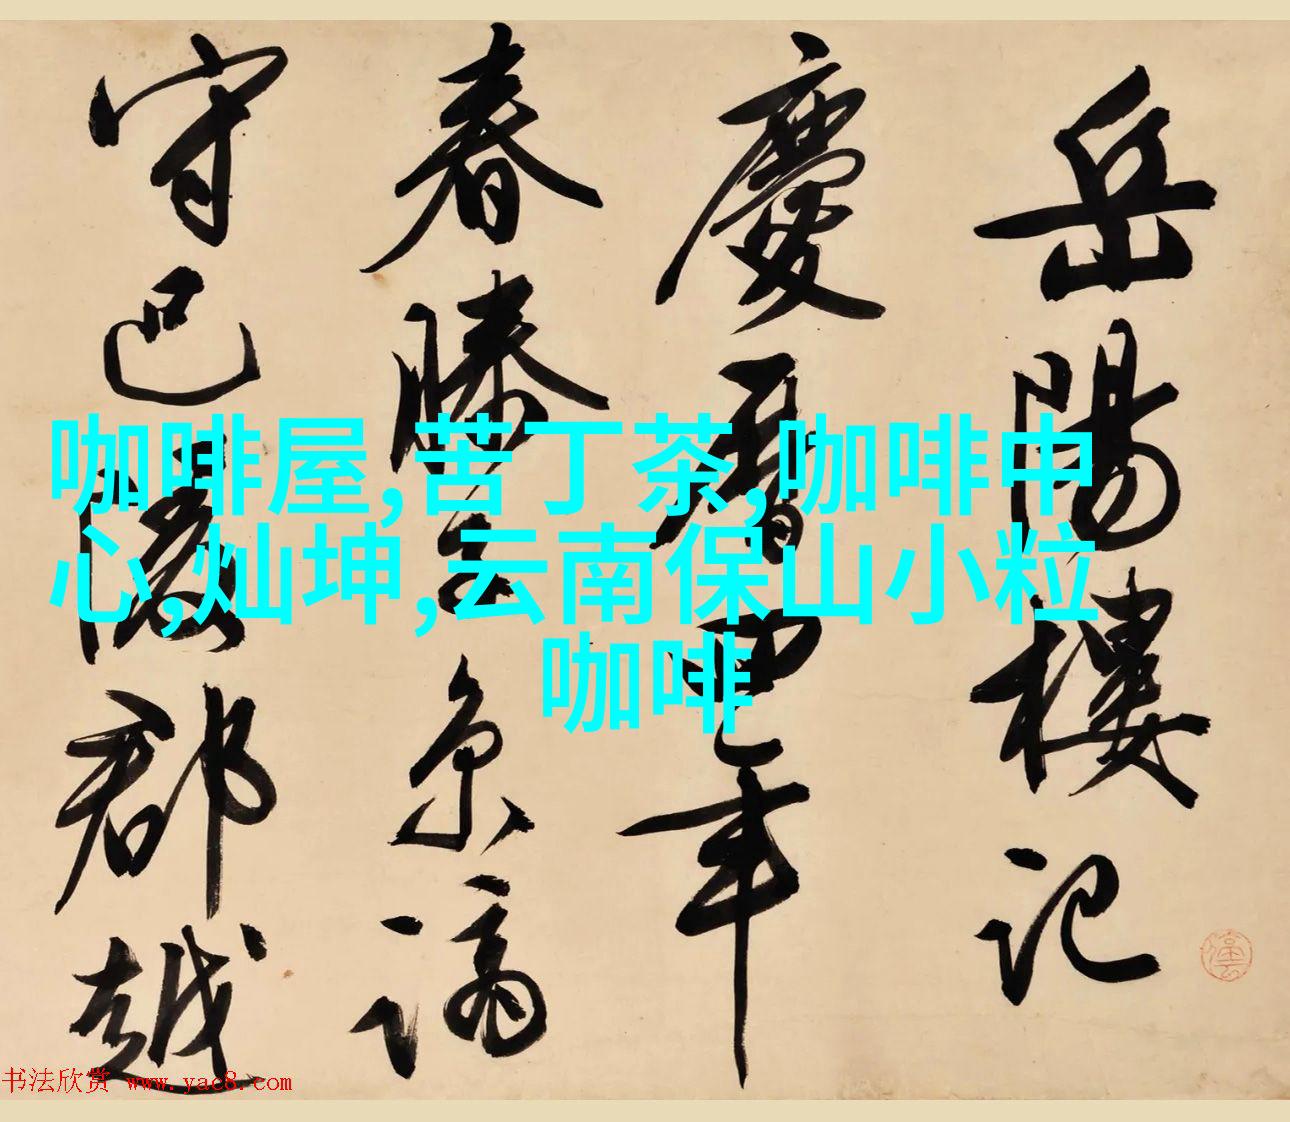 岳陽樓記
慶曆四年
春滕子京謫
守巴陵郡越
咖啡屋,苦丁茶,咖啡中
心,灿坤,云南保山小粒
咖啡
书法欣赏 www.yac8.com